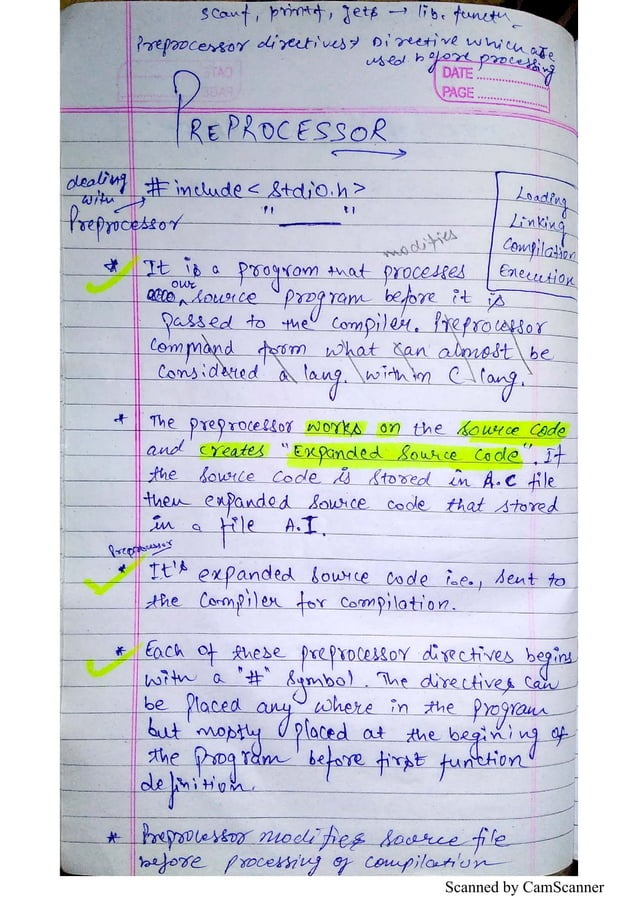 scanf, printf, gets → lib. functn.
Preprocessor directives → Directive which are
used before processing
DATE
PAGE
PREPROCESSOR
dealing
with
Preprocessor
# include < stdio.h >
" ——— "
Loading
Linking
Compilation
Execution
modifies
* It is a program that processes
our source program before it is
passed to the compiler. Preprocessor
command form what can almost be
considered a lang. within C lang.
* The preprocessor works on the source code
and creates "Expanded Source Code". If
the source code is stored in A.C file
then expanded source code that stored
in a file A.I.
Preprocessor
* It's expanded source code i.e., sent to
the compiler for compilation.
* Each of these preprocessor directives begins
with a "#" symbol. The directives can
be placed any where in the program
but mostly placed at the begining of
the program before first function
definition.
* Preprocessor modifies source file
before processing of compilation
Scanned by CamScanner